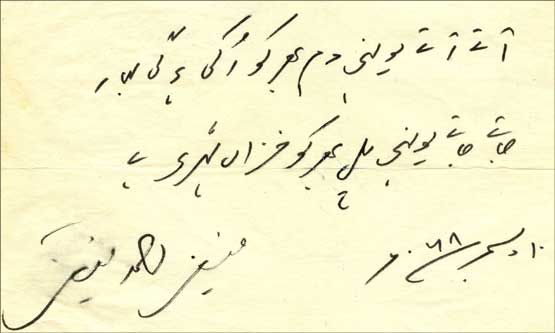 آتے آتے یونہی دم بھر کو رُکی ہوگی بہار
جاتے جاتے یونہی پل بھر کو خزاں ٹھہری ہے
فیض احمد فیض
دسمبر ۶۸ء